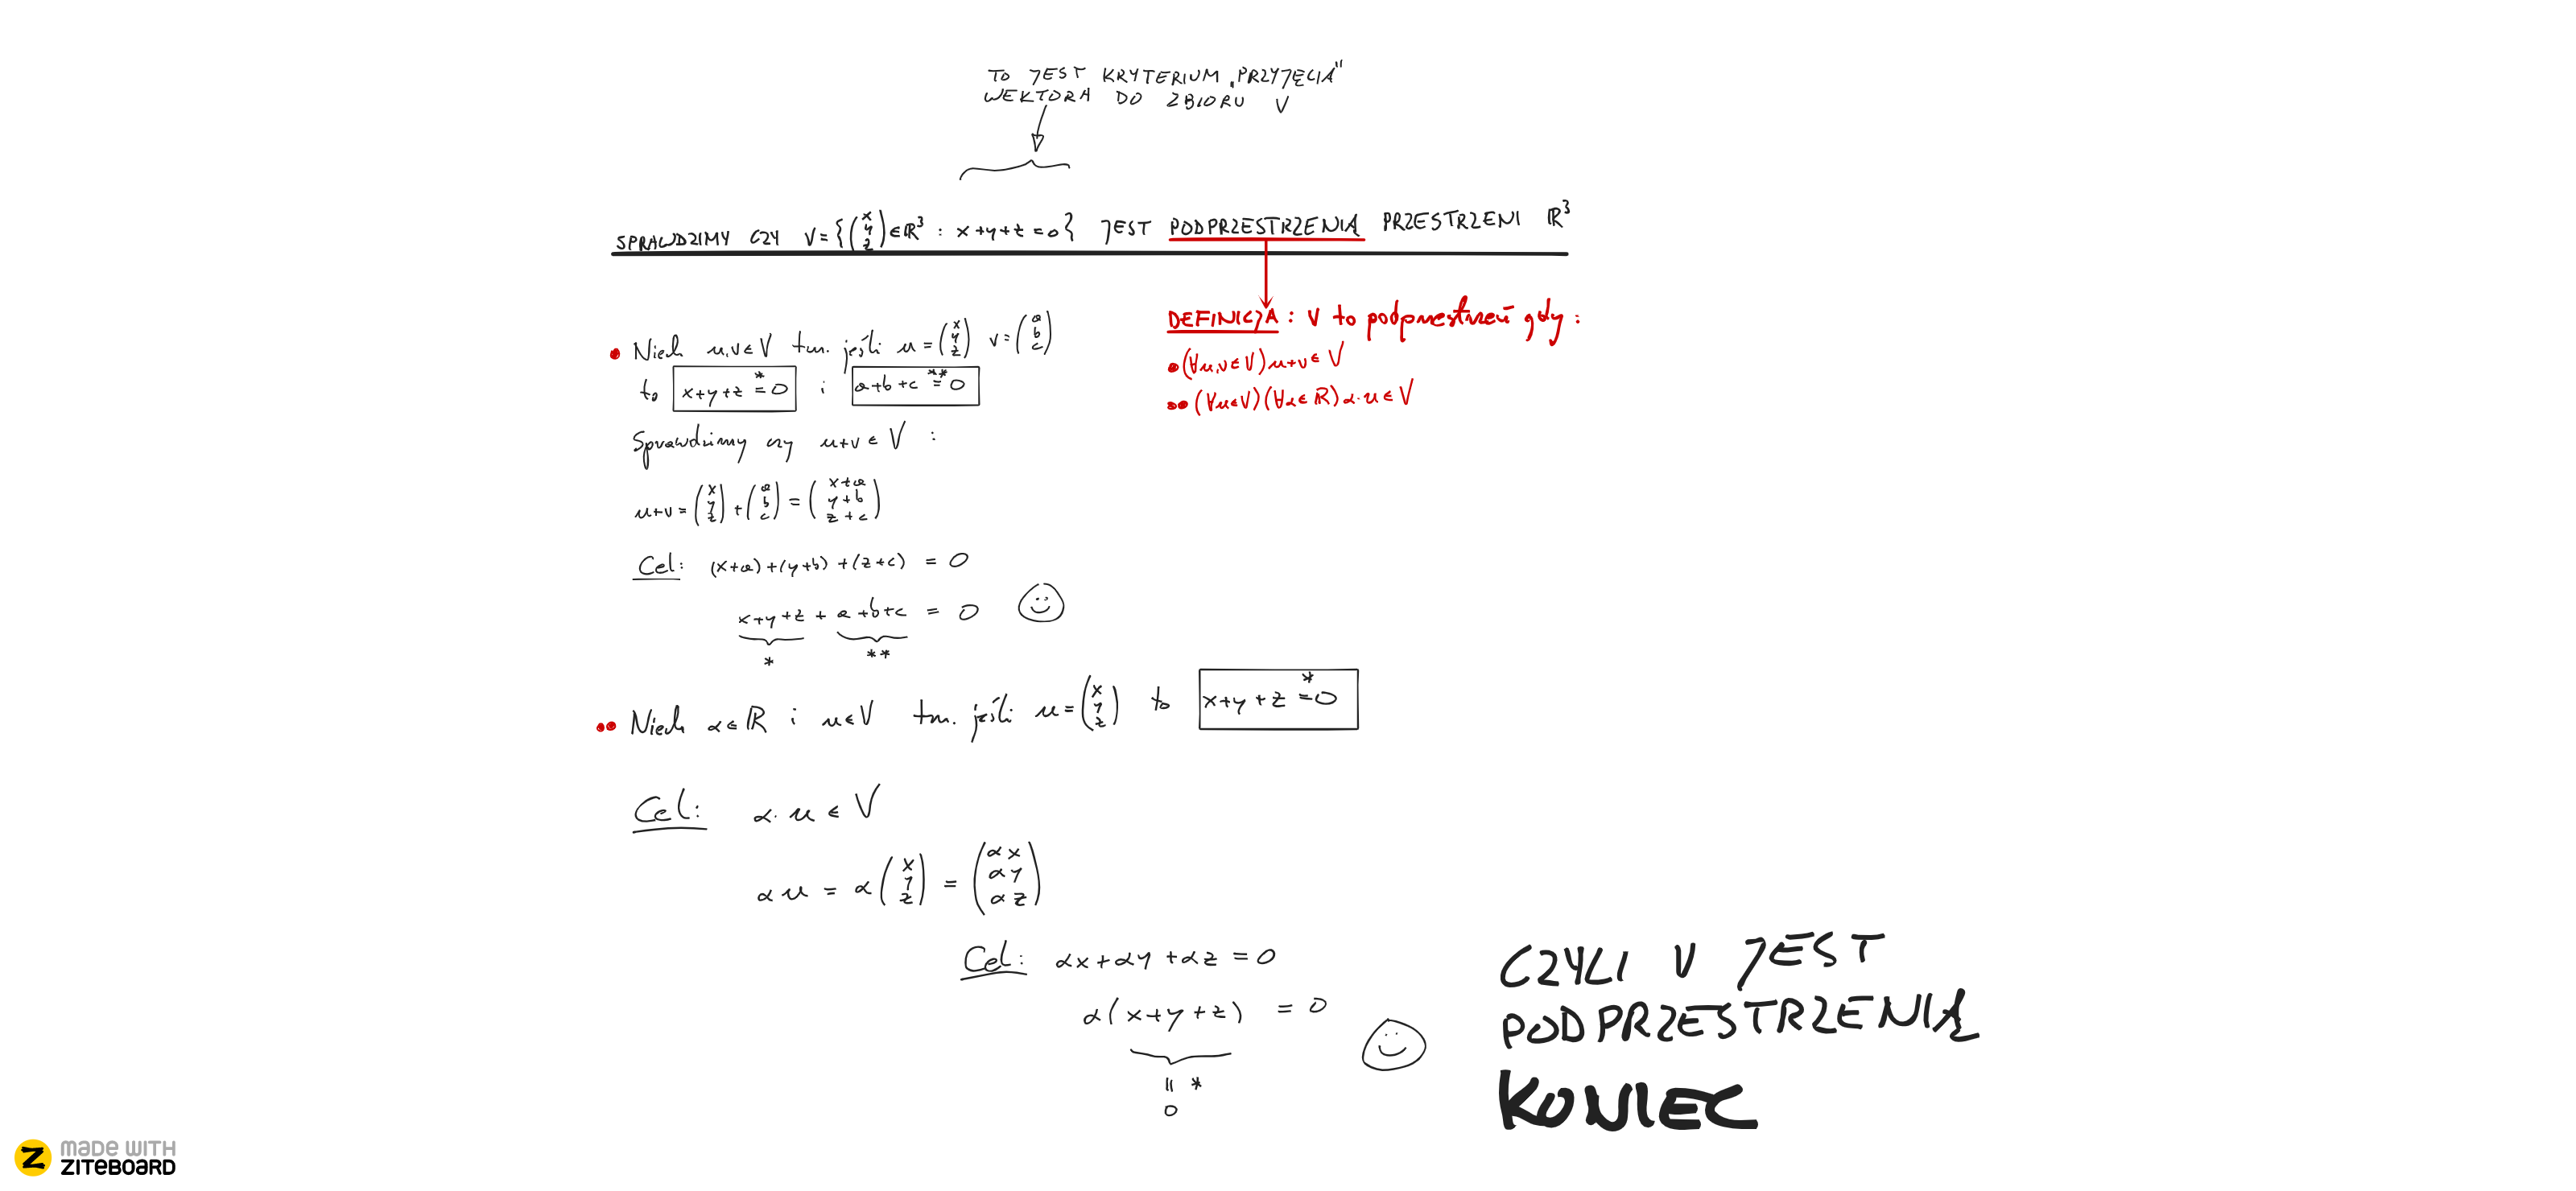 TO JEST KRYTERIUM „PRZYJĘCIA”
WEKTORA DO ZBIORU V
SPRAWDZIMY CZY V = { (x y z) ∈ ℝ³ : x+y+z=0 } JEST PODPRZESTRZENIĄ PRZESTRZENI ℝ³
DEFINICJA : V to podprzestrzeń gdy :
• (∀u,v∈V) u+v∈V
•• (∀u∈V)(∀α∈ℝ) α·u∈V
• Niech u,v∈V tzn. jeśli u = (x y z) v = (a b c)
to x+y+z =* 0 i a+b+c =** 0
Sprawdzimy czy u+v ∈ V :
u+v = (x y z) + (a b c) = (x+a y+b z+c)
Cel: (x+a)+(y+b)+(z+c) = 0
x+y+z + a+b+c = 0
* **
•• Niech α∈ℝ i u∈V tzn. jeśli u = (x y z) to x+y+z =* 0
Cel: α·u ∈ V
αu = α (x y z) = (αx αy αz)
Cel: αx+αy+αz = 0
α(x+y+z) = 0
= *
0
CZYLI V JEST
PODPRZESTRZENIĄ
KONIEC
MADE WITH
ZITEBOARD